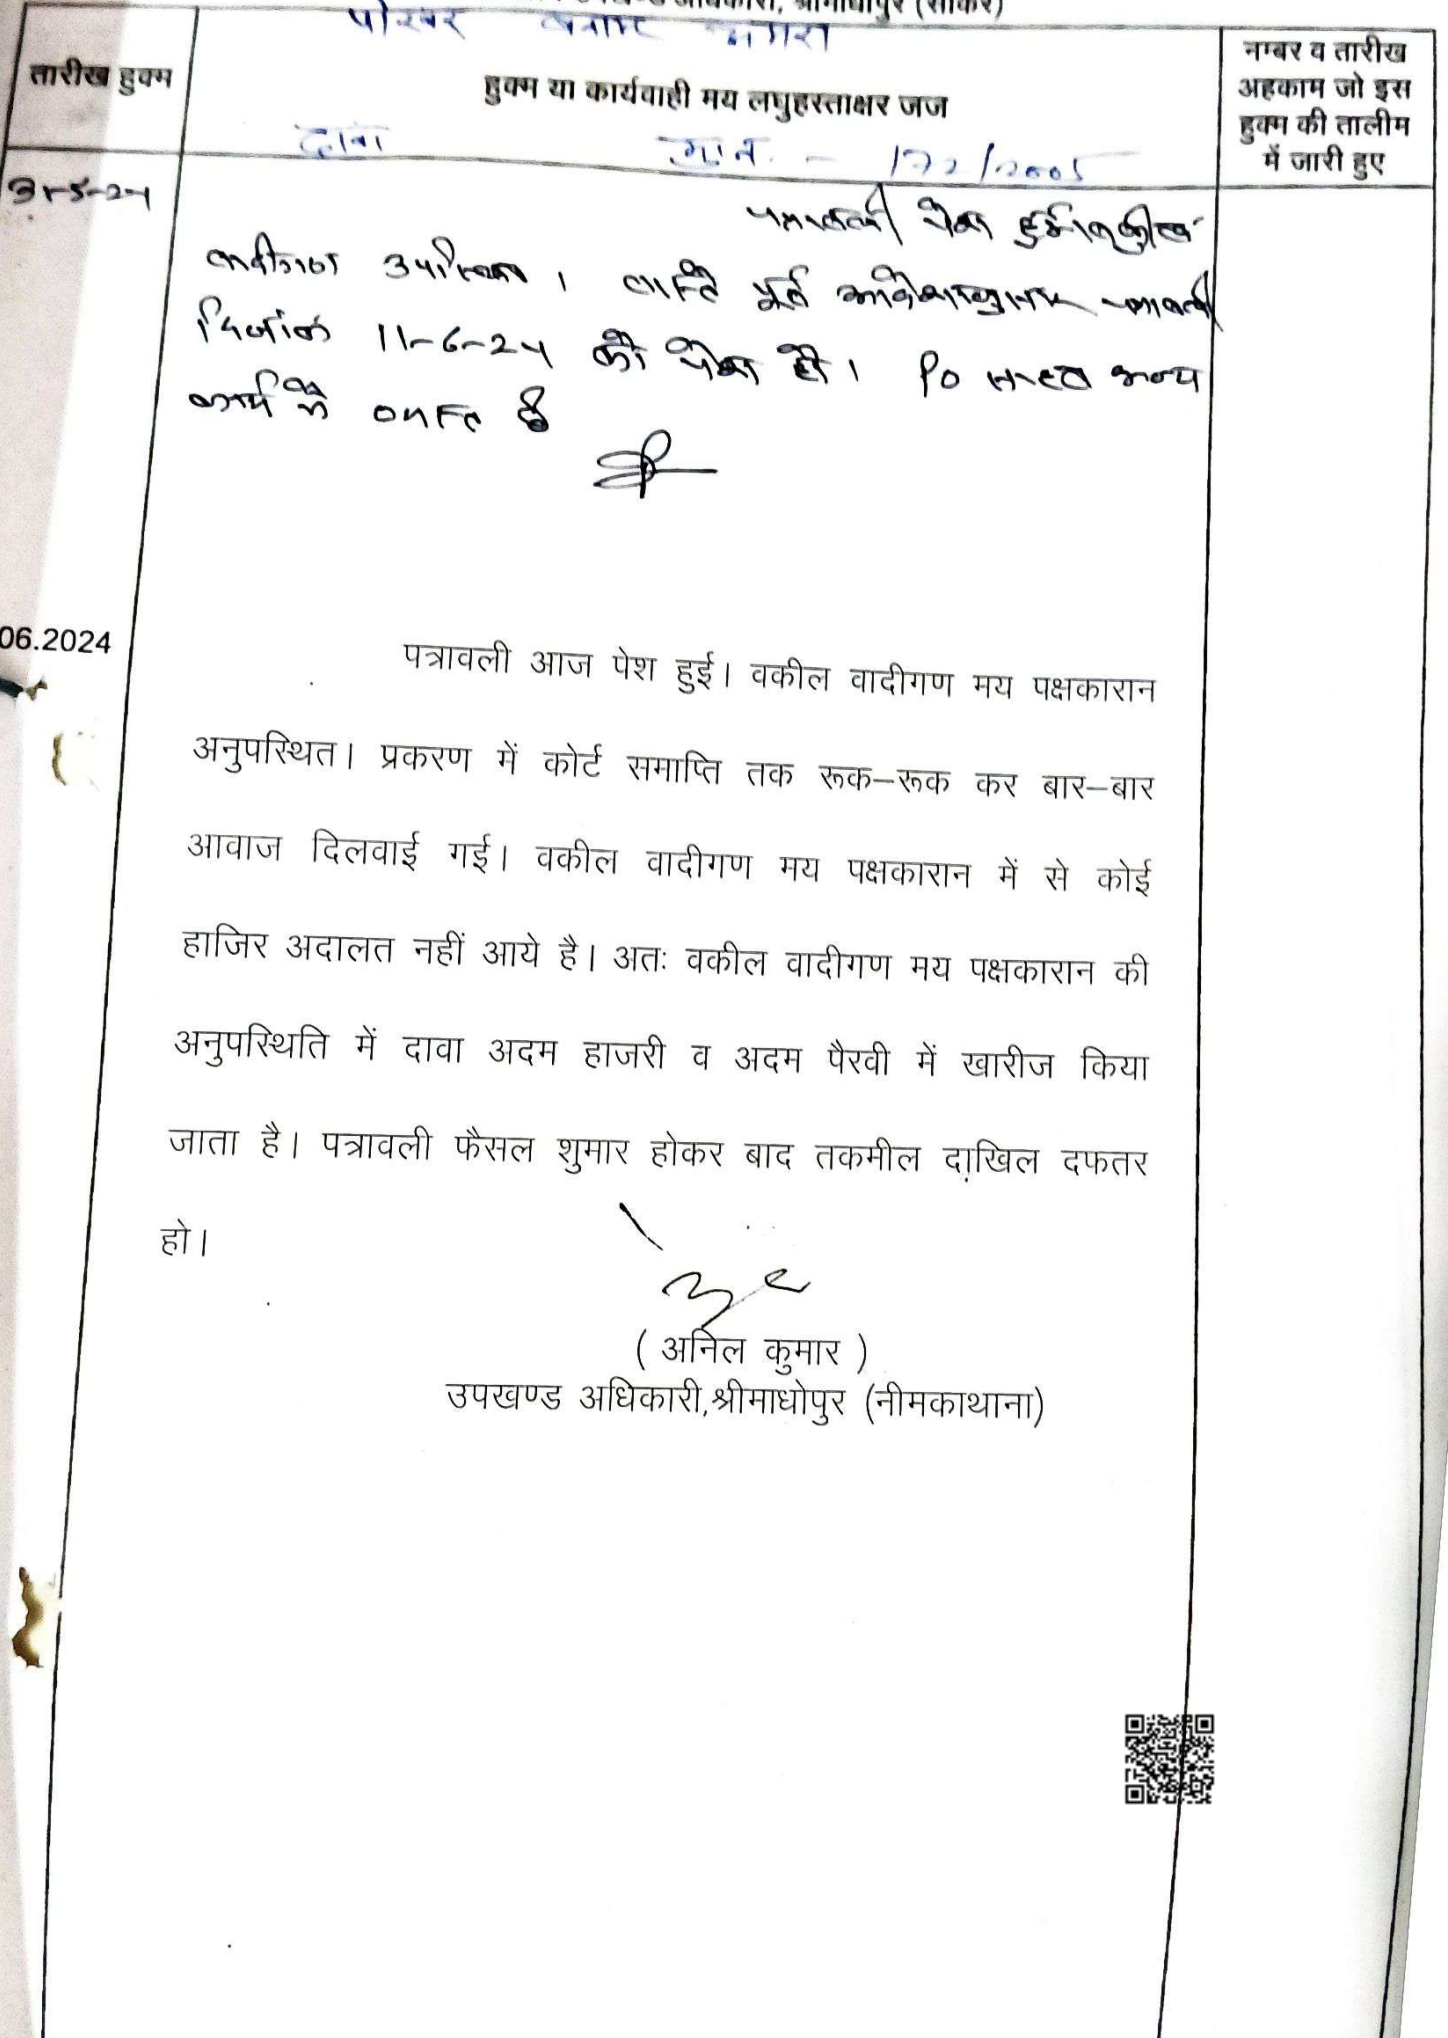 अधिकारी, श्रीमाधोपुर (सीकर)
पोखर बनाम
तारीख हुक्म
हुक्म या कार्यवाही मय लघुहस्ताक्षर जज
नम्बर व तारीख
अहकाम जो इस
हुक्म की तालीम
में जारी हुए
दावा - 172/2005
31-5-24
पत्रावली पेश हुई। वकील
वादीगण उपस्थित। वास्ते पूर्व आदेशानुसार पत्रावली
दिनांक 11-6-24 को पेश हो। PO साहब अन्य
कार्य में व्यस्त है
06.2024
पत्रावली आज पेश हुई। वकील वादीगण मय पक्षकारान
अनुपस्थित। प्रकरण में कोर्ट समाप्ति तक रूक–रूक कर बार–बार
आवाज दिलवाई गई। वकील वादीगण मय पक्षकारान में से कोई
हाजिर अदालत नहीं आये है। अतः वकील वादीगण मय पक्षकारान की
अनुपस्थिति में दावा अदम हाजरी व अदम पैरवी में खारीज किया
जाता है। पत्रावली फैसल शुमार होकर बाद तकमील दाखिल दफतर
हो।
( अनिल कुमार )
उपखण्ड अधिकारी,श्रीमाधोपुर (नीमकाथाना)